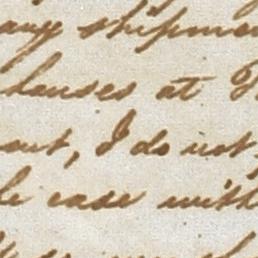 any shipmen
houses at
out, I do not
le case with